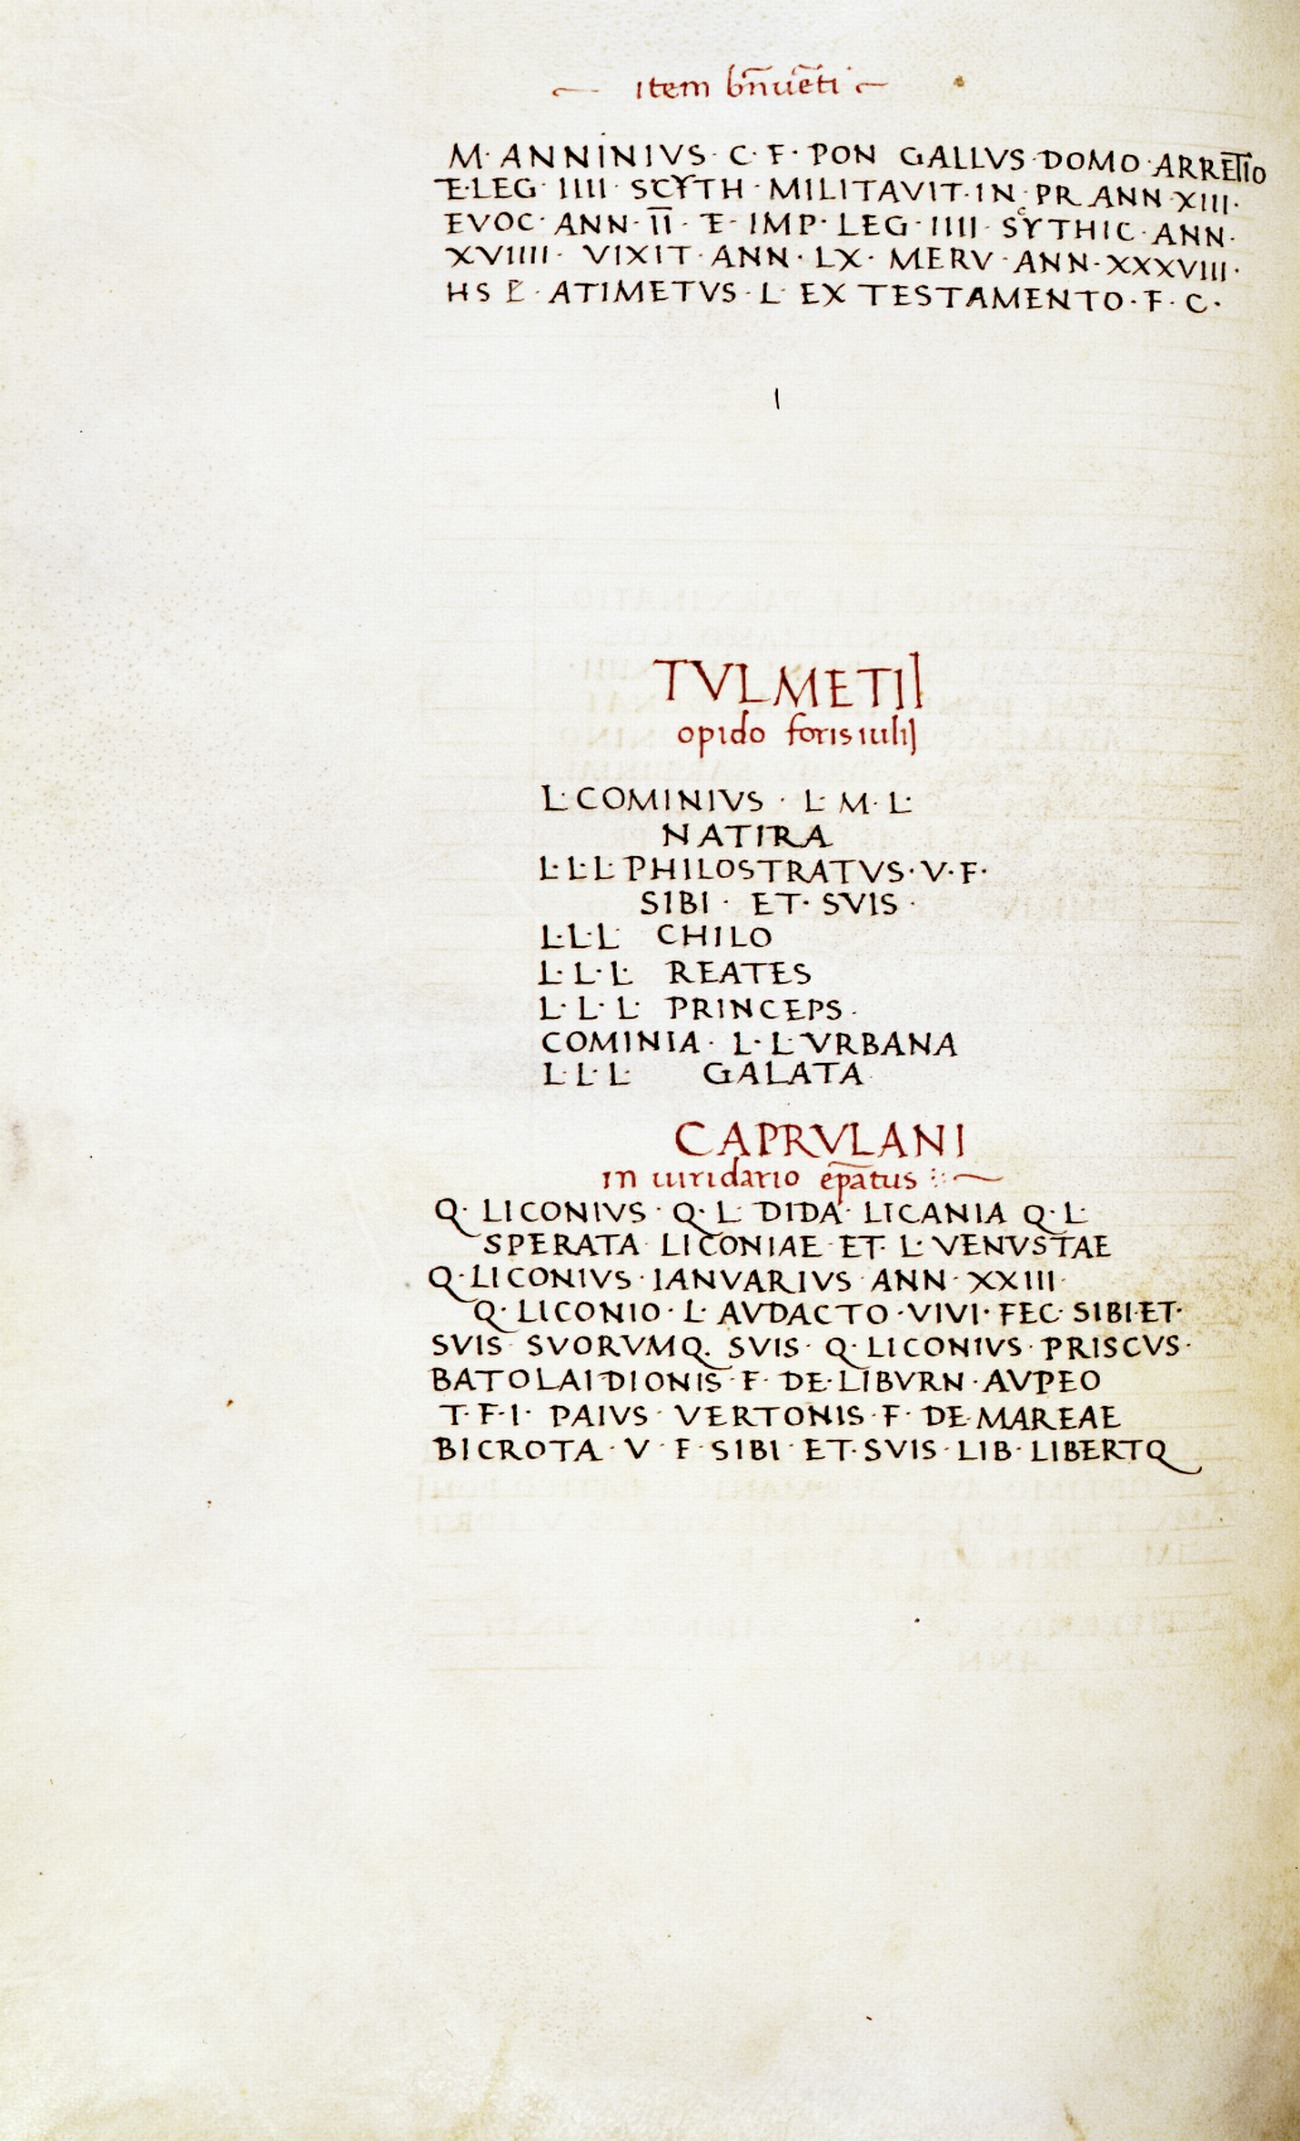 item bn̄uēti
M· ANNINIVS· C· F· PON GALLVS·DOMO·ARRETIO
E·LEG· IIII· SCYTH·MILITAVIT·IN·PR ANN·XIII·
EVOC· ANN· II· E· IMP· LEG·IIII· SCYTHIC·ANN·
XVIIII· VIXIT·ANN· LX· MERV·ANN·XXXVIII·
HS E·ATIMETVS·L· EX TESTAMENTO·F·C·
I
TVLMETII
opido foris iulij
L·COMINIVS · L· M· L·
NATIRA
L·L·L·PHILOSTRATVS·V·F·
SIBI· ET· SVIS·
L·L·L CHILO
L·L·L REATES
L·L·L· PRINCEPS·
COMINIA· L·L·VRBANA
L·L·L GALATA
CAPRVLANI
in uiridario ep̄atus
Q· LICONIVS· Q·L· DIDA· LICANIA Q·L·
SPERATA LICONIAE·ET· L·VENVSTAE
Q·LICONIVS·IANVARIVS·ANN·XXIII·
Q·LICONIO·L· AVDACTO·VIVI·FEC·SIBI·ET·
SVIS SVORVMQ. SVIS· Q·LICONIVS·PRISCVS·
BATOLAI·DIONIS·F· DE·LIBVRN·AVPEO
T·F·I· PAIVS· VERTONIS·F· DE·MAREAE
BICROTA·V·F·SIBI·ET·SVIS·LIB·LIBERTQ